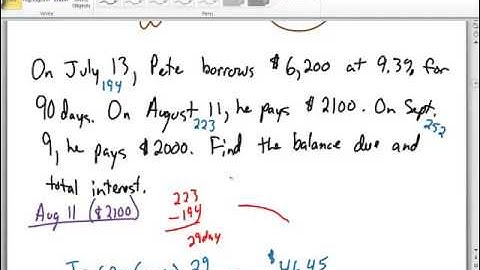 On July 13, Pete borrows $6,200 at 9.3% for
194
90 days. On August 11, he pays $2100. On Sept.
223
252
9, he pays $2000. Find the balance due and
total interest.
Aug 11 ($2100)
223
-194
29 day
29
$46.45